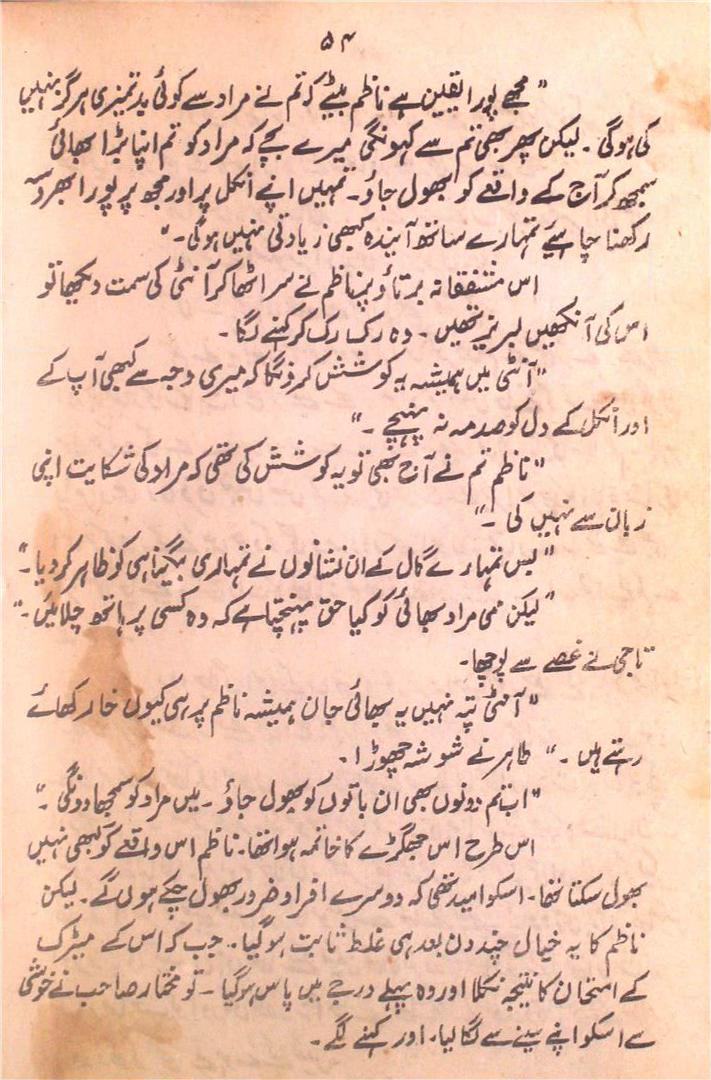 ۵۴
"مجھے پورا یقین ہے ناظم بیٹے کہ تم نے مراد سے کوئی بدتمیزی ہرگز نہیں
کی ہوگی۔ لیکن پھر بھی تم سے کہونگی میرے بچے کہ مراد کو تم اپنا بڑا بھائی
سمجھ کر آج کے واقعے کو بھول جاؤ۔ تمہیں اپنے انکل پر اور مجھ پر پورا بھروسہ
رکھنا چاہیئے تمہارے ساتھ آیندہ کبھی زیادتی نہیں ہوگی۔"
اس مشفقانہ برتاؤ پر ناظم نے سر اٹھا کر آنٹی کی سمت دیکھا تو
اس کی آنکھیں لبریز تھیں۔ وہ رک رک کر کہنے لگا۔
"آنٹی میں ہمیشہ یہ کوشش کرونگا کہ میری وجہ سے کبھی آپ کے
اور انکل کے دل کو صدمہ نہ پہنچے۔"
"ناظم تم نے آج بھی تو یہ کوشش کی تھی کہ مراد کی شکایت اپنی
زبان سے نہیں کی۔"
"بس تمہارے گال کے ان نشانوں نے تمہاری بیگناہی کو ظاہر کر دیا۔"
"لیکن ممی مراد بھائی کو کیا حق پہنچتا ہے کہ وہ کسی پر ہاتھ چلائیں۔"
تاجی نے غصے سے پوچھا۔
"آنٹی پتہ نہیں یہ بھائی جان ہمیشہ ناظم پر ہی کیوں خار کھائے
رہتے ہیں۔" طاہر نے شوشہ چھوڑا۔
"اب تم دونوں بھی ان باتوں کو بھول جاؤ۔ میں مراد کو سمجھا دونگی۔"
اس طرح اس جھگڑے کا خاتمہ ہوا تھا۔ ناظم اس واقعے کو کبھی نہیں
بھول سکتا تھا۔ اسکو امید تھی کہ دوسرے افراد ضرور بھول چکے ہوں گے۔ لیکن
ناظم کا یہ خیال چند دن بعد ہی غلط ثابت ہو گیا۔ جب کہ اس کے میٹرک
کے امتحان کا نتیجہ نکلا اور وہ پہلے درجے میں پاس ہو گیا۔ تو مختار صاحب نے خوشی
سے اسکو اپنے سینے سے لگا لیا۔ اور کہنے لگے۔